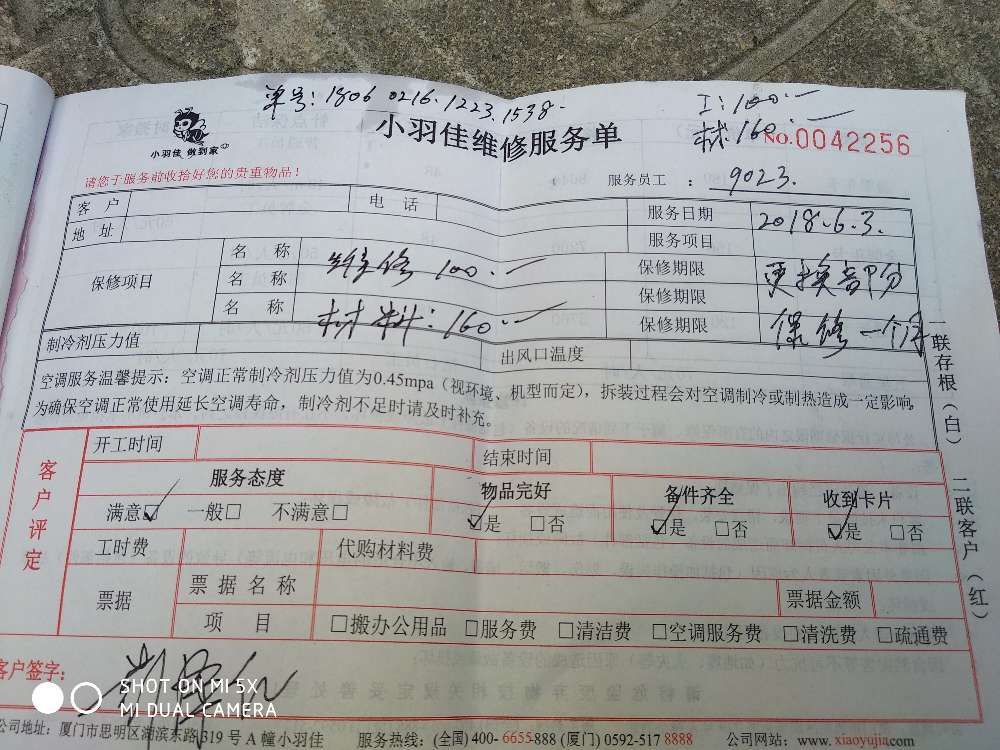 单号: 1806 0216.1223.1538.
工: 100.一
材 160.一
小羽佳 做到家
小羽佳维修服务单
NO.0042256
请您于服务前收拾好您的贵重物品!
服务员工 : 9023.
客户 电话 服务日期 2018.6.3.
地址 服务项目
保修项目 名称 维修 100.一 保修期限 更换部分
名称 保修期限
名称 材料: 160.一 保修期限 保修一个月
制冷剂压力值 出风口温度
空调服务温馨提示: 空调正常制冷剂压力值为0.45mpa (视环境、机型而定), 拆装过程会对空调制冷或制热造成一定影响。
为确保空调正常使用延长空调寿命, 制冷剂不足时请及时补充。
一联存根(白) 二联客户(红)
客户评定
开工时间 结束时间
服务态度 物品完好 备件齐全 收到卡片
满意☑ 一般□ 不满意□ ☑是 □否 ☑是 □否 ☑是 □否
工时费 代购材料费
票据 票据名称 票据金额
项目 □搬办公用品 □服务费 □清洁费 □空调服务费 □清洗费 □疏通费
客户签字:
SHOT ON MI 5X
MI DUAL CAMERA
公司地址: 厦门市思明区湖滨东路319号A幢小羽佳 服务热线: (全国) 400-6655-888 (厦门) 0592-517 8888 公司网站: www.xiaoyujia.com